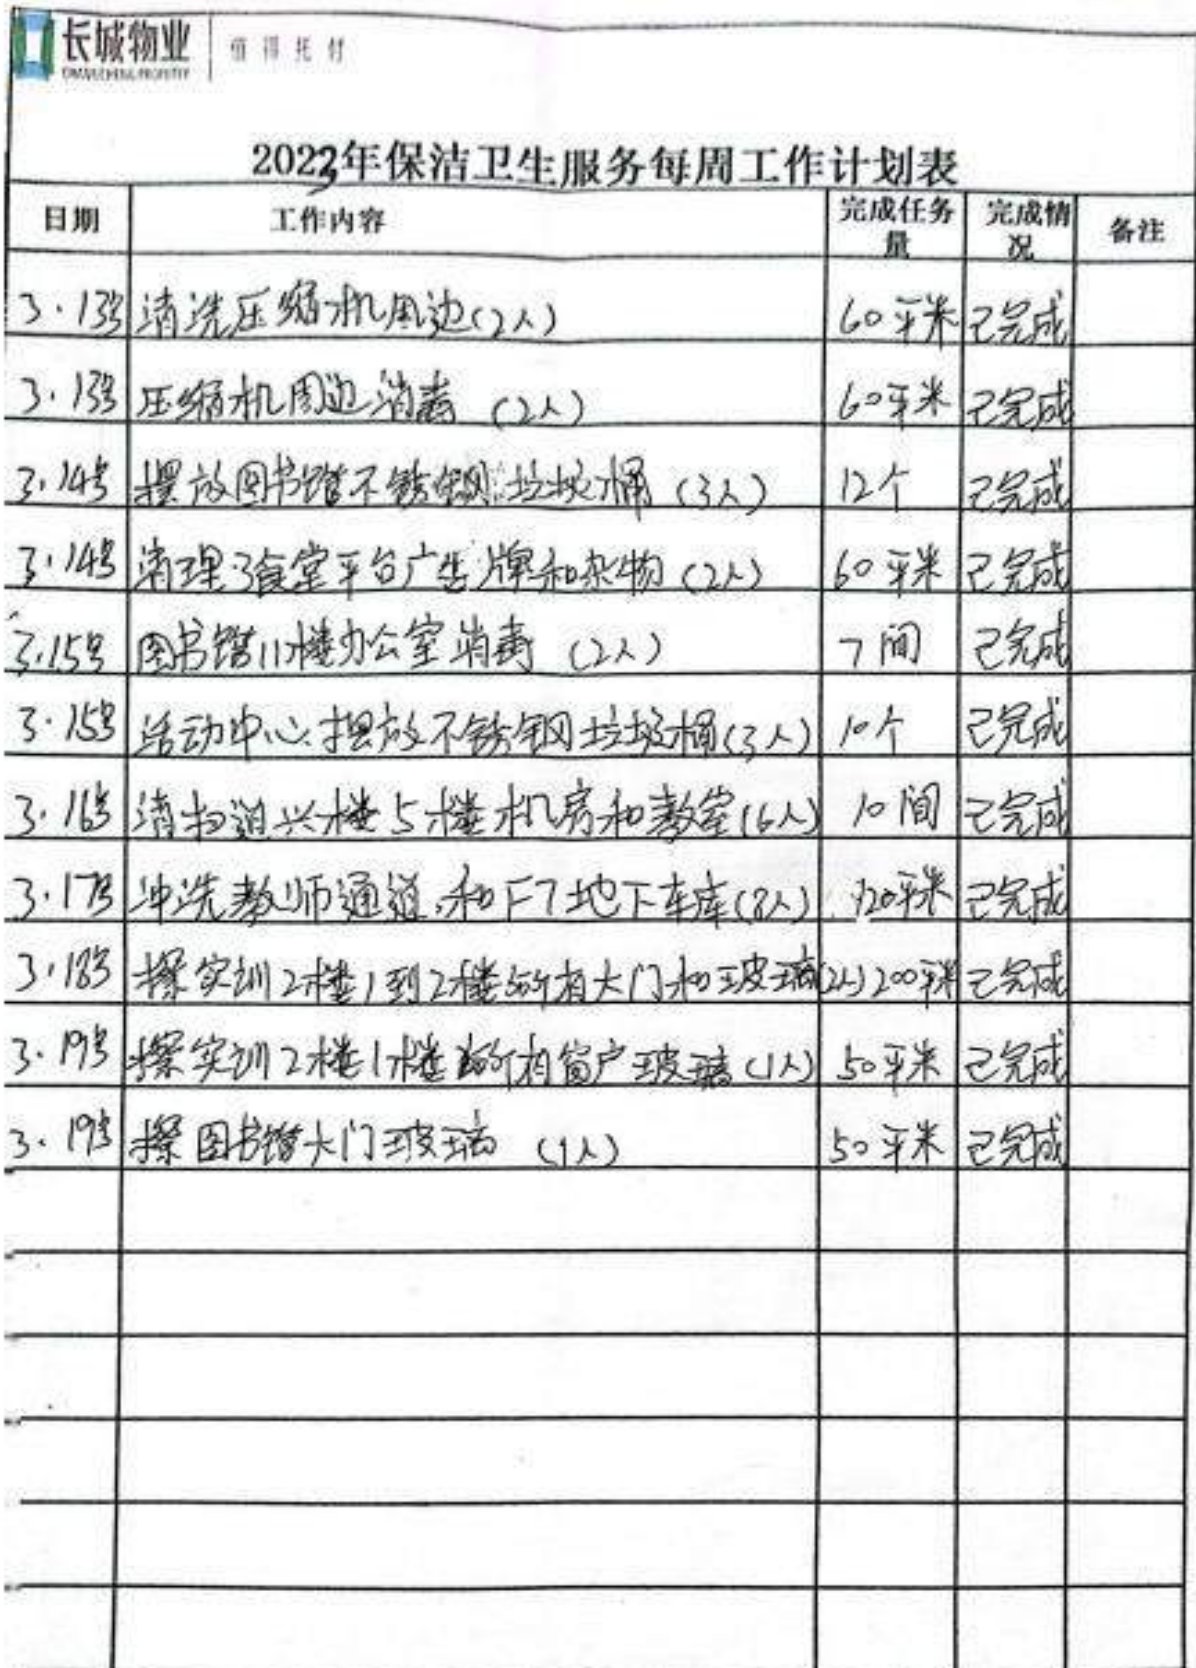 长城物业 值得托付
CHANGCHENG PROPERTY
2023年保洁卫生服务每周工作计划表
日期 工作内容 完成任务量 完成情况 备注
3.13号 清洗压缩机周边(2人) 60平米 已完成
3.13号 压缩机周边消毒 (2人) 60平米 已完成
3.14号 摆放图书馆不锈钢垃圾桶 (3人) 12个 已完成
3.14号 清理3食堂平台广告牌和杂物 (2人) 60平米 已完成
3.15号 图书馆11楼办公室消毒 (2人) 7间 已完成
3.15号 活动中心摆放不锈钢垃圾桶(3人) 10个 已完成
3.16号 清扫道兴楼5楼机房和教室(6人) 10间 已完成
3.17号 冲洗教师通道,和F7地下车库(8人) 120平米 已完成
3.18号 擦实训2楼1到2楼所有大门和玻璃(2人) 200平米 已完成
3.19号 擦实训2楼1楼所有窗户玻璃(1人) 50平米 已完成
3.19号 擦图书馆大门玻璃 (1人) 50平米 已完成